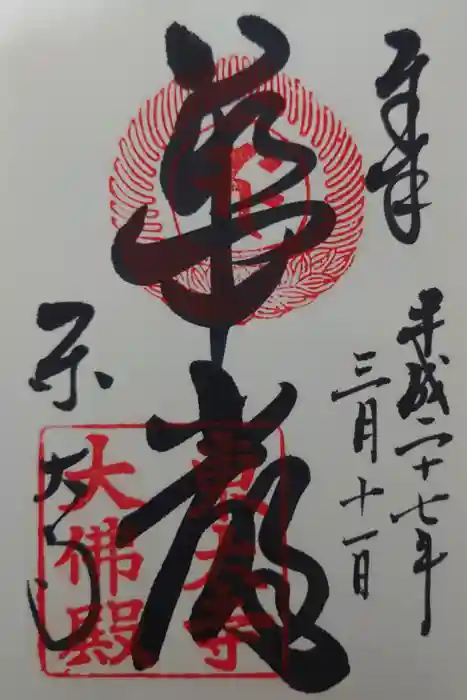 奉拝
平成二十七年
三月十一日
華嚴
東大寺
大佛殿
東大寺